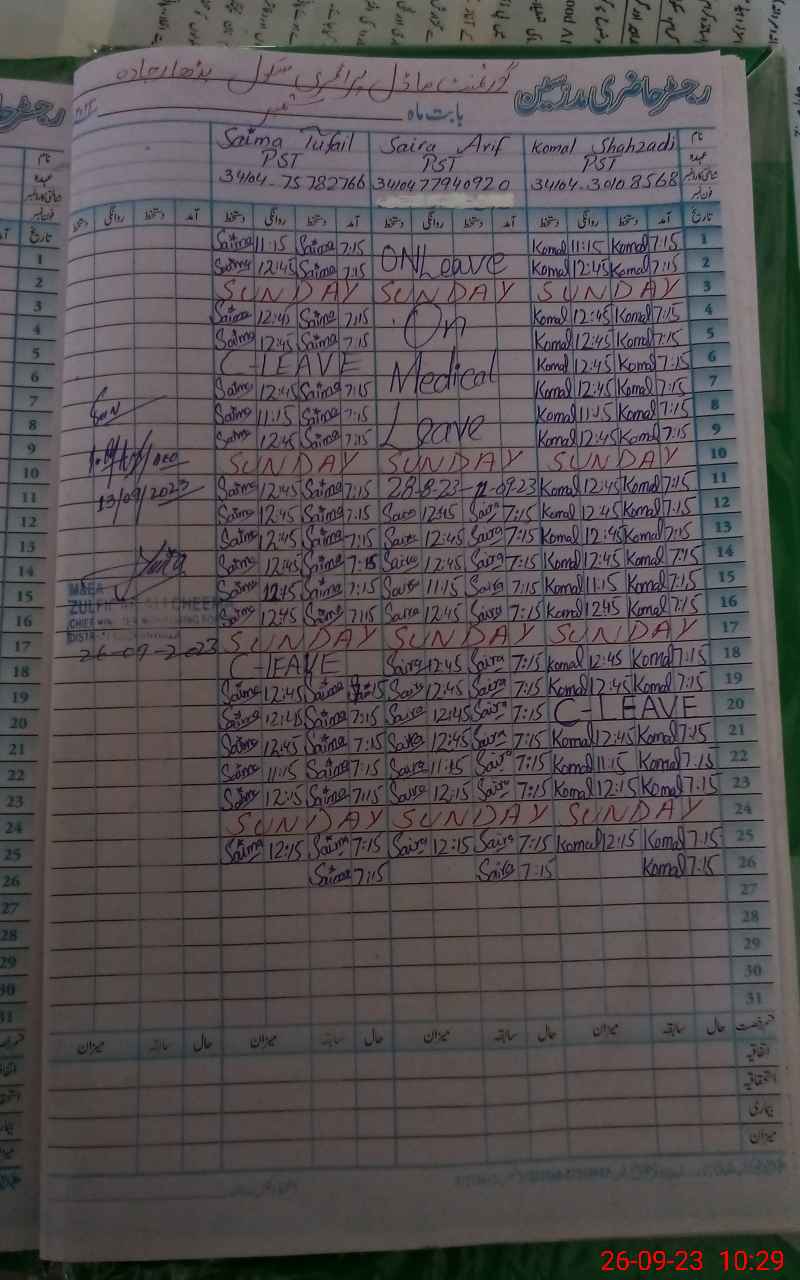 رجسٹر حاضری مدرسین گورنمنٹ ماڈل پرائمری سکول
بابت ماہ ستمبر
نام Komal Shahzadi Saira Arif Saima Tufail
عہدہ PST PST PST
شناختی کارڈ نمبر 34104-30108568 34104 77940920 34104-75782766
فون نمبر
تاریخ آمد دستخط روانگی دستخط آمد دستخط روانگی دستخط آمد دستخط روانگی دستخط آمد دستخط روانگی دستخط
Saima 11:15 Saima 7:15 ON Leave Komal 11:15 Komal 7:15 1
Saima 12:45 Saima 7:15 Komal 12:45 Komal 7:15 2
SUNDAY SUNDAY SUNDAY 3
Saima 12:45 Saima 7:15 On Komal 12:45 Komal 7:15 4
Saima 12:45 Saima 7:15 Komal 12:45 Komal 7:15 5
C-LEAVE Medical Komal 12:45 Komal 7:15 6
Saima 12:45 Saima 7:15 Komal 12:45 Komal 7:15 7
Saima 11:15 Saima 7:15 Leave Komal 11:15 Komal 7:15 8
Saima 12:45 Saima 7:15 Komal 12:45 Komal 7:15 9
SUNDAY SUNDAY SUNDAY 10
13/09/2023 Saima 12:45 Saima 7:15 28-8-23-11-09-23 Komal 12:45 Komal 7:15 11
Saima 12:45 Saima 7:15 Saira 12:45 Saira 7:15 Komal 12:45 Komal 7:15 12
Saima 12:45 Saima 7:15 Saira 12:45 Saira 7:15 Komal 12:45 Komal 7:15 13
Saima 12:45 Saima 7:15 Saira 12:45 Saira 7:15 Komal 12:45 Komal 7:15 14
MSEA Saima 12:15 Saima 7:15 Saira 11:15 Saira 7:15 Komal 11:15 Komal 7:15 15
Saima 12:45 Saima 7:15 Saira 12:45 Saira 7:15 Komal 12:45 Komal 7:15 16
SUNDAY SUNDAY SUNDAY 17
26-09-2023 C-LEAVE Saira 12:45 Saira 7:15 Komal 12:45 Komal 7:15 18
Saima 12:45 Saima 7:15 Saira 12:45 Saira 7:15 Komal 12:45 Komal 7:15 19
Saima 12:45 Saima 7:15 Saira 12:45 Saira 7:15 C-LEAVE 20
Saima 12:45 Saima 7:15 Saira 12:45 Saira 7:15 Komal 12:45 Komal 7:15 21
Saima 11:15 Saima 7:15 Saira 11:15 Saira 7:15 Komal 11:15 Komal 7:15 22
Saima 12:15 Saima 7:15 Saira 12:15 Saira 7:15 Komal 12:15 Komal 7:15 23
SUNDAY SUNDAY SUNDAY 24
Saima 12:15 Saima 7:15 Saira 12:15 Saira 7:15 Komal 12:15 Komal 7:15 25
Saima 7:15 Saira 7:15 Komal 7:15 26
27
28
29
30
31
قسم رخصت حال سابقہ میزان حال سابقہ میزان حال سابقہ میزان حال سابقہ میزان
اتفاقیہ
استحقاقیہ
بیماری
میزان
26-09-23 10:29